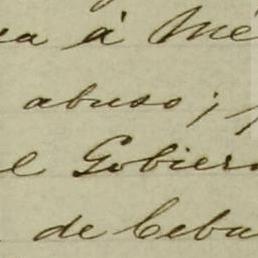 á Mé
abuso;
el Gobier
de Cebu